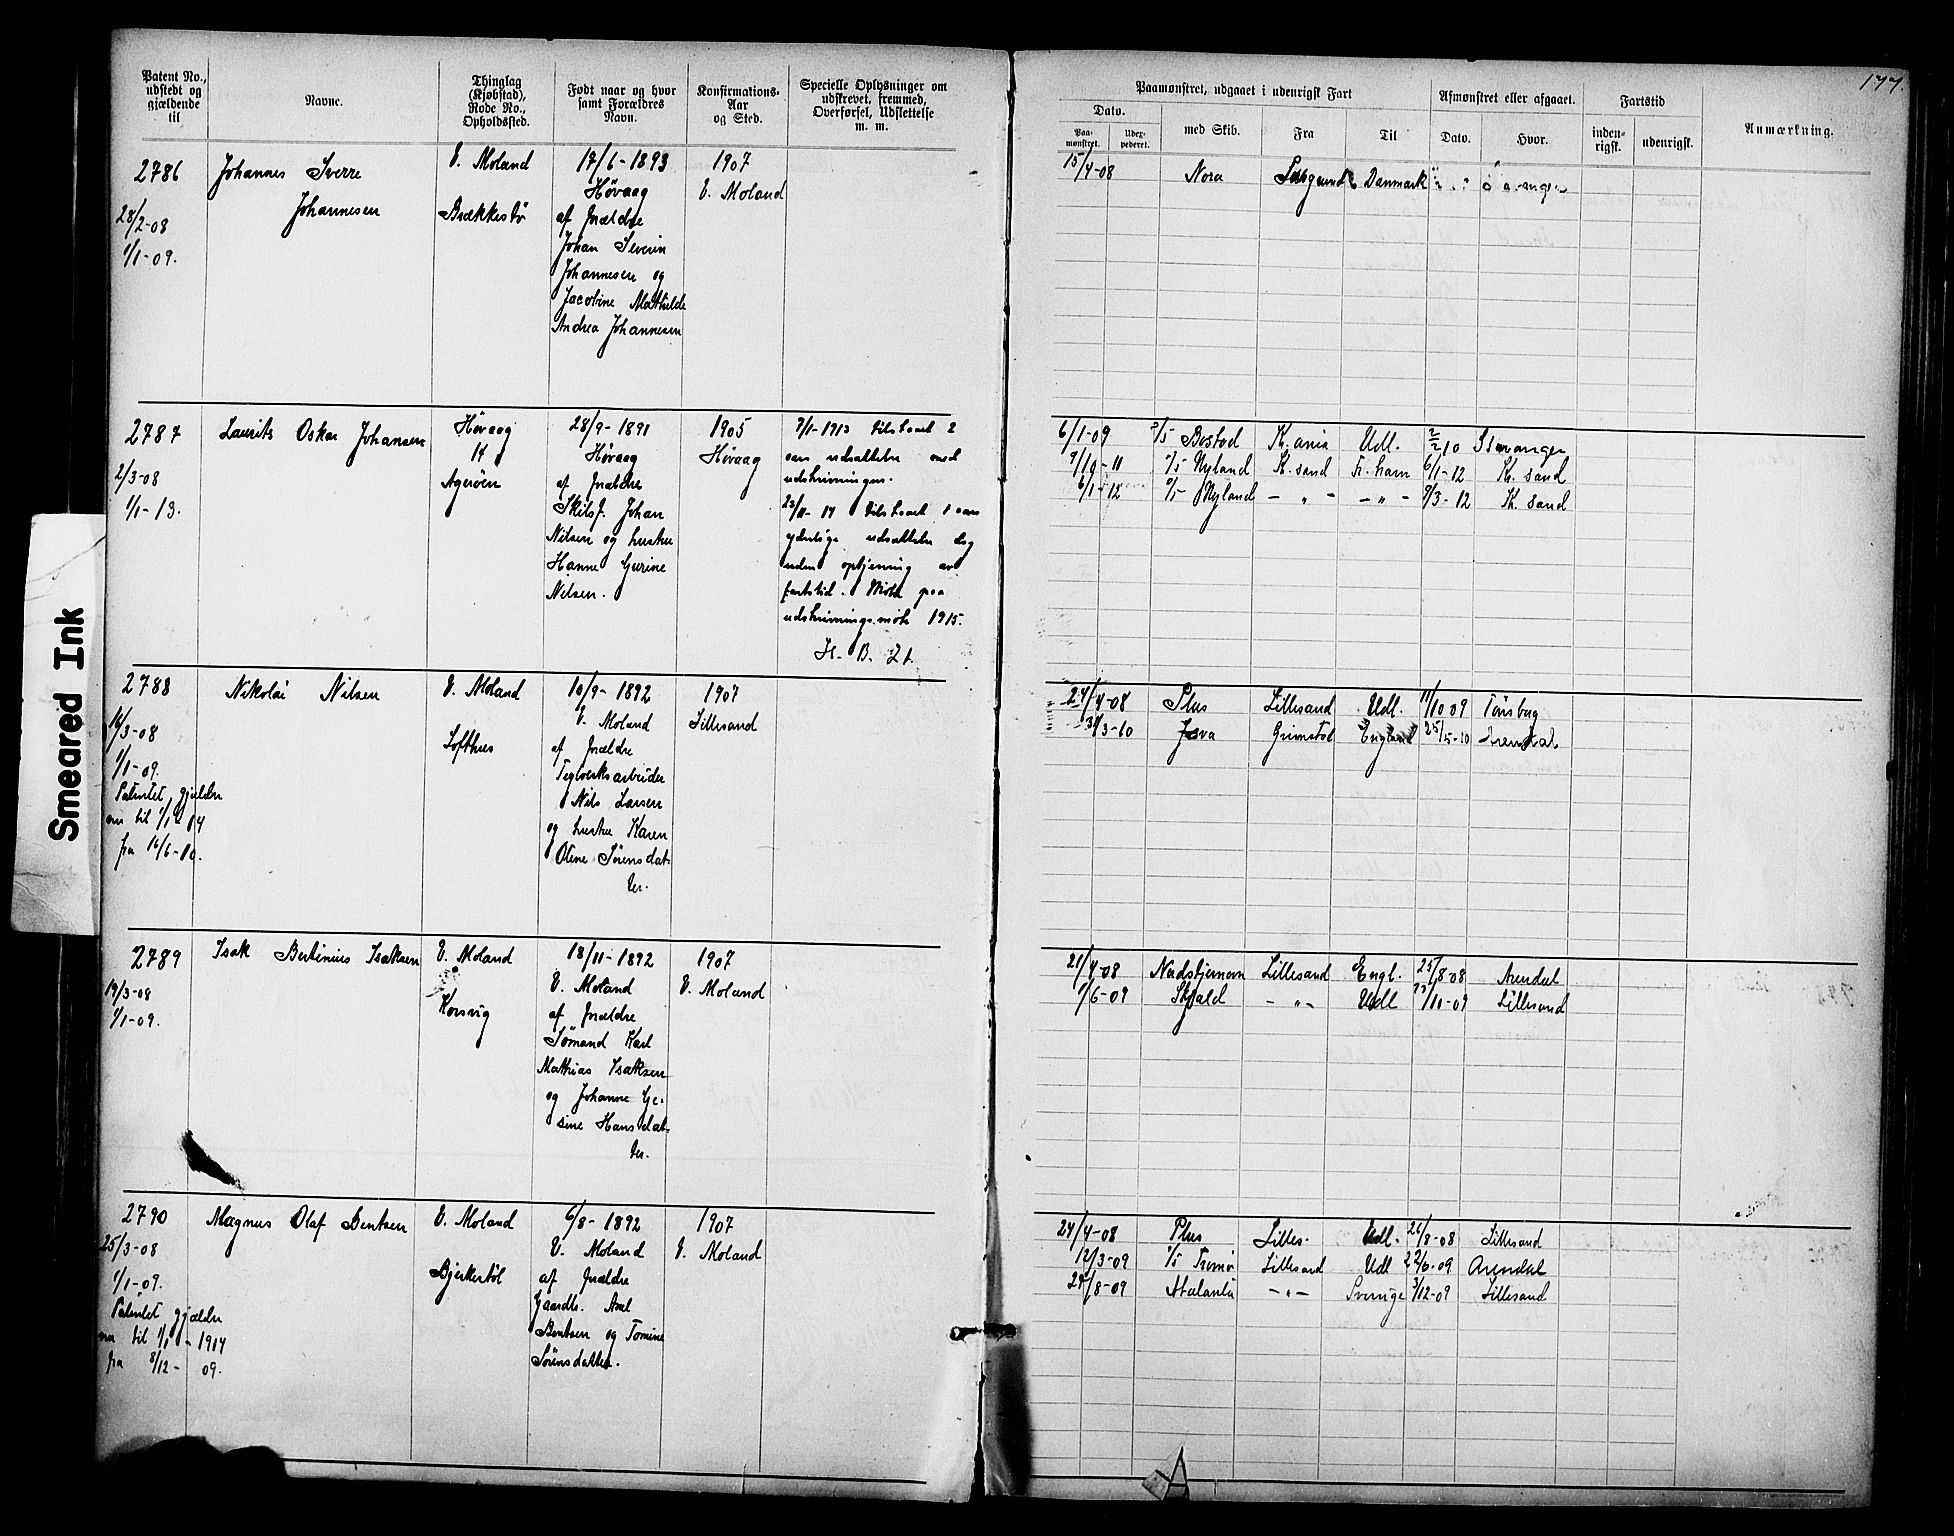 177.
Patent No., udstedt og gjældende til
Navne.
Thinglag (Kjøbstad), Rode No., Opholdssted.
Født naar og hvor samt Forældres Navn.
Konfirmations- Aar og Sted.
Specielle Oplysninger om udskrevet, fremmed, Overførsel, Udslettelse m. m.
Paamønstret, udgaaet i udenrigsk Fart
Afmønstret eller afgaaet.
Fartstid
Anmærkning.
Dato.
Paa- mønstret.
Udex- pederet.
med Skib.
Fra
Til
Dato.
Hvor.
inden- rigsk.
udenrigsk.
2786
28/2-08
1/1-09.
Johannes Sverre
Johannesen
V. Moland
Brækkestø
17/6-1893
Høvaag
af forældre
Johan Severin
Johannesen og
Jacobine Mathilde
Andrea Johannesen
1907
V. Moland
15/4-08 Nora Danmark
2787
2/3-08
1/1-13.
Laurits Oskar Johansen
Høvaag
14
Agerøen
28/9-1891
Høvaag
af forældre
Skibsf. Johan
Nilsen og hustru
Hanne Gurine
Nilsen.
1905
Høvaag
7/1-1913 tilstaaet 2
aars udsættelse med
udskrivningen.
23/11-14 tilstaaet 1 aars
yderlige udsættelse dog
uden optjening av
fartstid. Møte paa
udskrivningsmøte 1915.
H. B. 21.
6/1-09 K.ania Udl. Stavanger
9/10-11 Nyland K.sand Fr. havn 6/1-12 Kr. sand
6/1-12 Nyland - " - - " - 9/3-12 K. sand
2788
16/3-08
1/1-09.
Patentet gjælder
nu til 1/1-14
fra 16/6-10.
Nikolai Nilsen
V. Moland
Lofthus
10/9-1892
V. Moland
af forældre
Teglverksarbeider
Nils Larsen
og hustru Karen
Oline Sørensdat-
ter.
1907
Lillesand
24/4-08 Plus Lillesand Udl. 11/10 09 Tønsberg
3/3-10 Java Grimstad England 25/5-10 Arendal
2789
19/3-08
1/1-09.
Isak Bertinius Isaksen
V. Moland
Korsvig
18/11-1892
V. Moland
af forældre
Sømand Karl
Mathias Isaksen
og Johanne Ge-
sine Hansdat-
ter.
1907
V. Moland
21/4-08 Nordstjernen Lillesand Engl. 25/8-08 Arendal
1/6-09 Skjald - " - Udl 23/11-09 Lillesand
2790
25/3-08
1/1-09.
Patentet gjælder
nu til 1/1-1914
fra 8/12-09.
Magnus Olaf Bentsen
V. Moland
Bjerkestøl
6/8-1892
V. Moland
af forældre
Gaardbr. Axel
Bentsen og Tomine
Sørensdatter.
1907
V. Moland
24/4-08 Plus Lilles. Udl. 26/8-08 Lillesand
12/3-09 Tromø Lillesand Udl 22/6-09 Arendal
24/8-09 Atalanta - " - Sverige 3/12-09 Lillesand
Smeared Ink